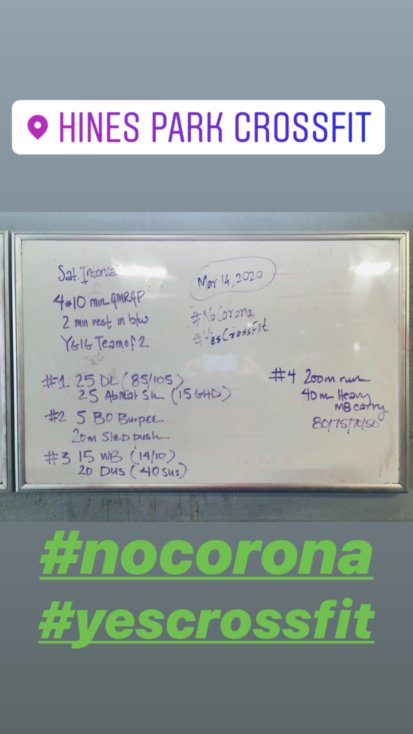 HINES PARK CROSSFIT
Sat. Interval
4*10 min AMRAP
2 min rest in b/w
YGIG Team of 2
Mar 14, 2020
#NoCorona
#YesCrossFit
#1 25 DL (85/105)
25 Abmat Su (15 GHD)
#2 5 BO Burpee
20m Sled push
#3 15 WB (14/10)
20 DUs (40 SUs)
#4 200m run
40m Heavy
MB carry
80/75/70/50
#nocorona
#yescrossfit